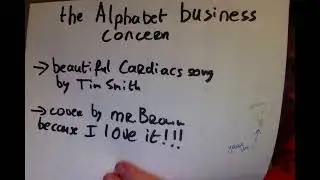 the Alphabet business
concern
→ beautiful Cardiacs song
by Tim Smith
→ cover by mr. Brown
because I love it!!!